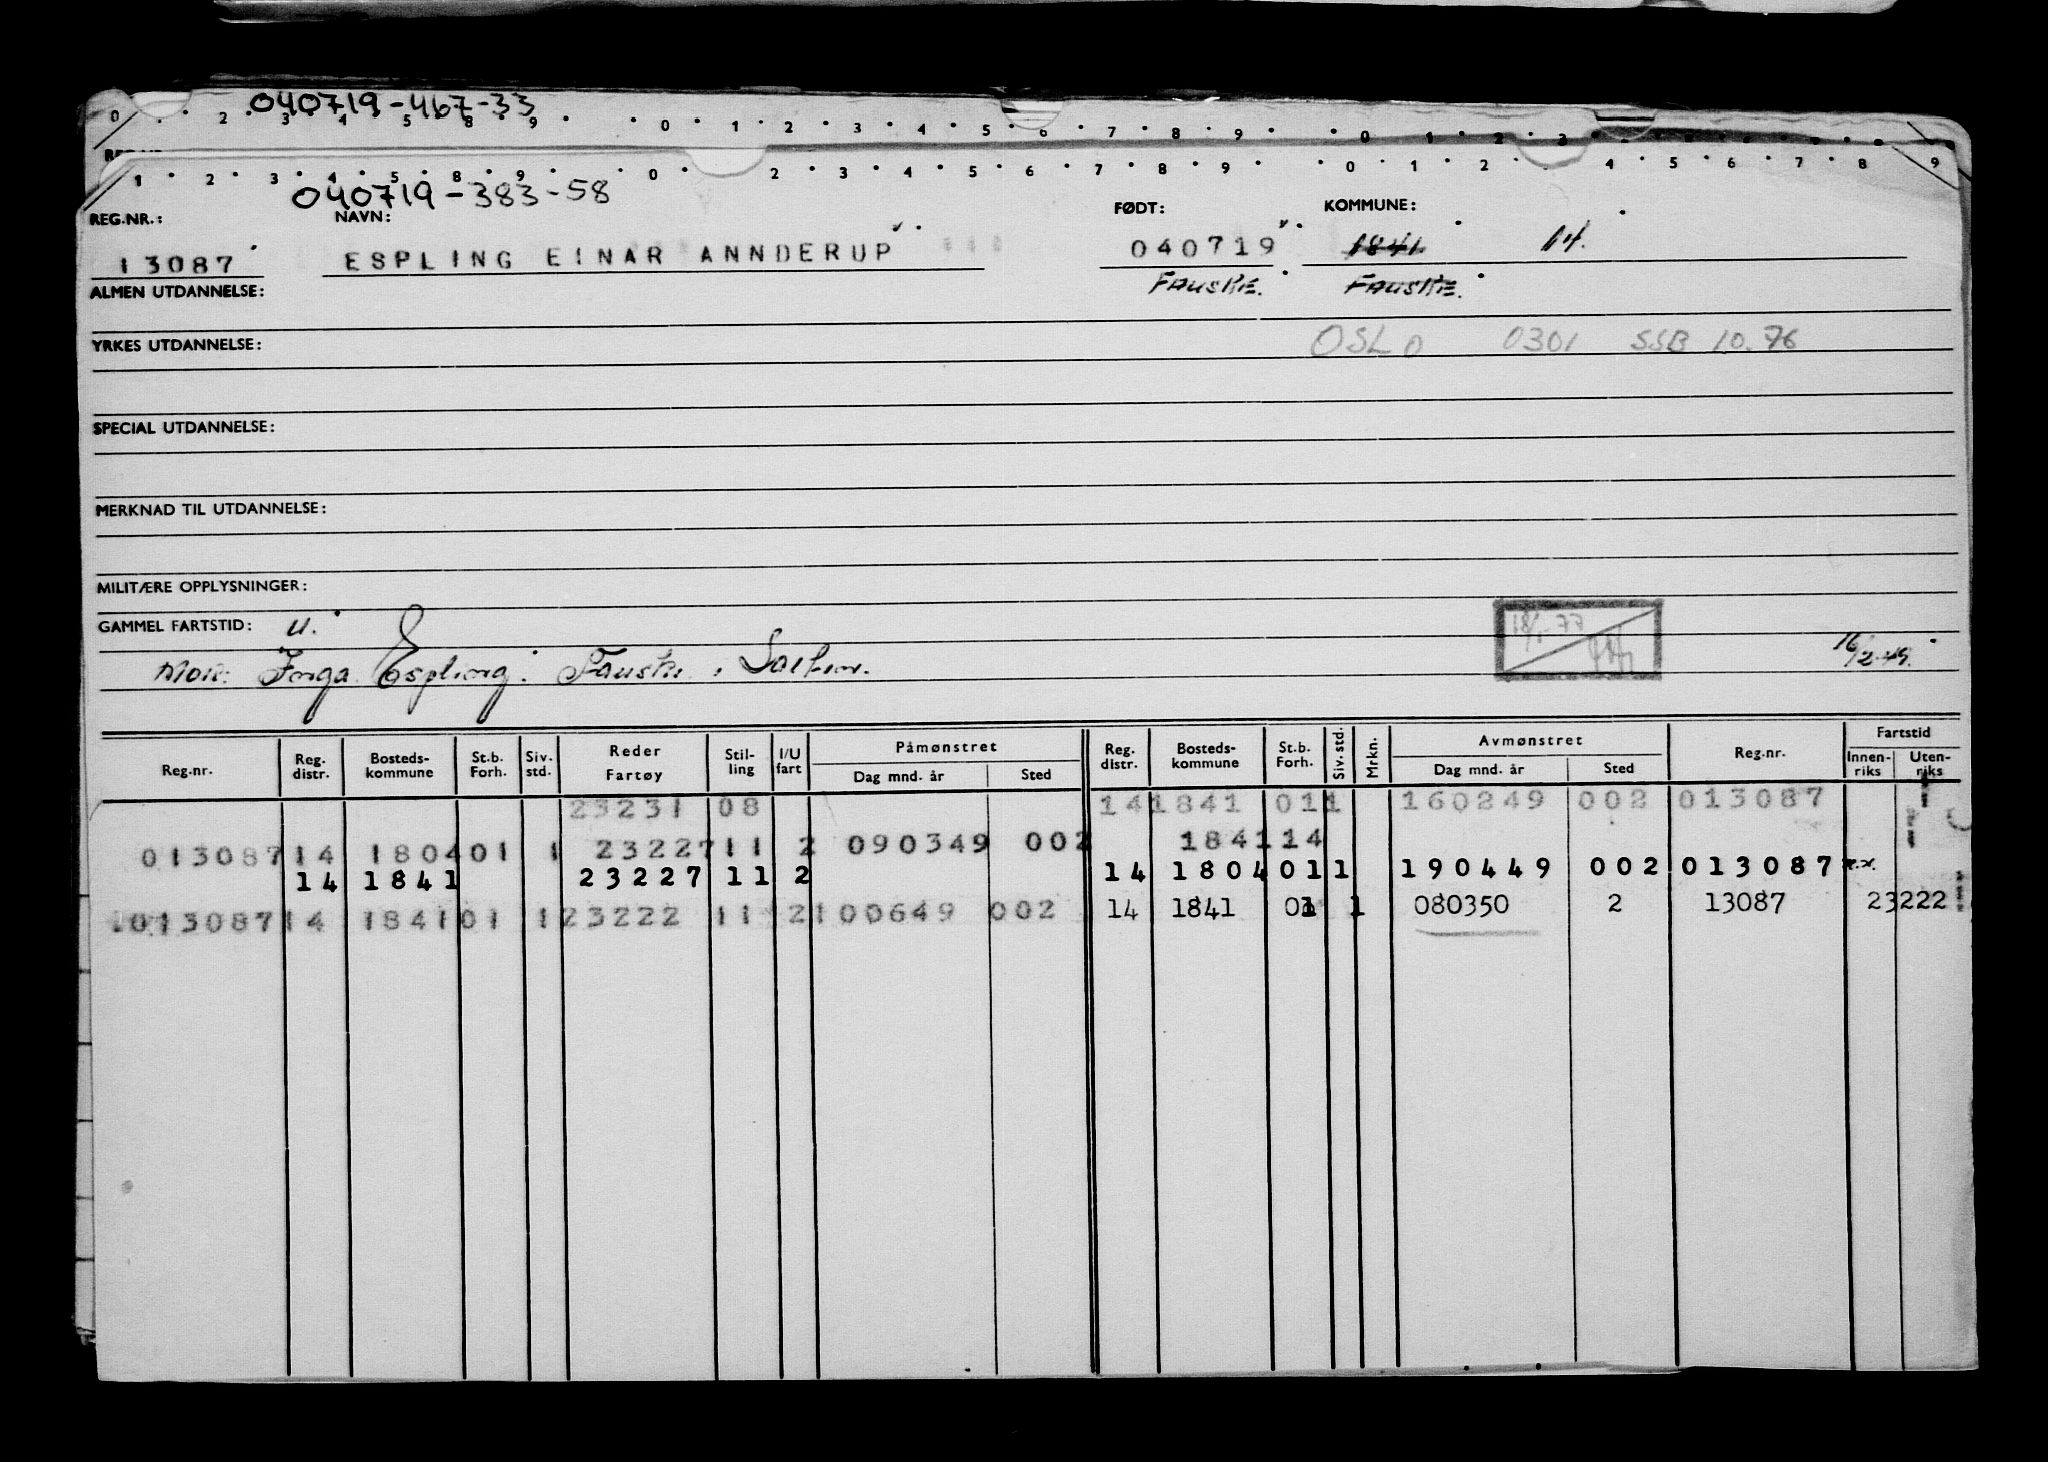 040719-467-33
0 2 3 4 5 8 9 0 1 2 3 4 5 6 7 8 9 0 1 2 3
1 2 3 4 5 8 9 0 2 3 4 5 6 7 8 9 0 1 2 4 5 6 7 8 9
040719-383-58
REG.NR.: NAVN: FØDT: KOMMUNE:
13087 ESPLING EINAR ANNDERUP 040719 1841 14.
ALMEN UTDANNELSE: FAUSKE. FAUSKE.
YRKES UTDANNELSE: OSLO 0301 SSB 10.76
SPECIAL UTDANNELSE:
MERKNAD TIL UTDANNELSE:
MILITÆRE OPPLYSNINGER:
GAMMEL FARTSTID: U.
Mor: Inga Espling. Fauske i Salten. 18/1-77 16/2-49.
Reg.nr. Reg. distr. Bosteds-kommune St.b. Forh. Siv. std. Reder Fartøy Stil-ling I/U fart Påmønstret Dag mnd. år Sted Reg. distr. Bosteds-kommune St.b. Forh. Siv. std. Mrkn. Avmønstret Dag mnd. år Sted Reg.nr. Fartstid Innen-riks Uten-riks
23231 08 14 1841 01 1 160249 002 013087
013087 14 1804 01 1 23227 11 2 090349 002 1841 14
14 1841 23227 11 2 14 1804 01 1 190449 002 013087 x.x.
013087 14 1841 01 1 23222 11 2 100649 002 14 1841 01 1 080350 2 13087 23222